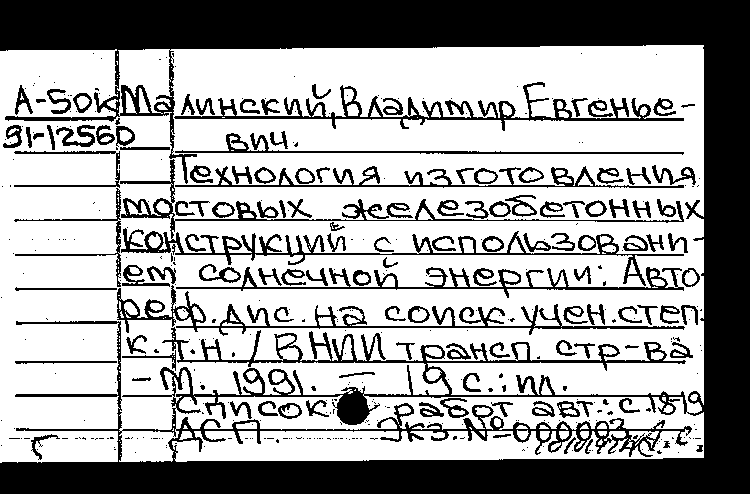 А-50к Малинский, Владимир Евгенье-
91-12560 вич.
Технология изготовления
мостовых железобетонных
конструкций с использовани-
ем солнечной энергии: Авто-
реф. дис. на соиск. учен. степ.
к.т.н. / ВНИИ трансп. стр-ва
- М., 1991. — 19 с.: ил.
Список работ авт.: с. 18-19
ДСП. Экз. № 000003